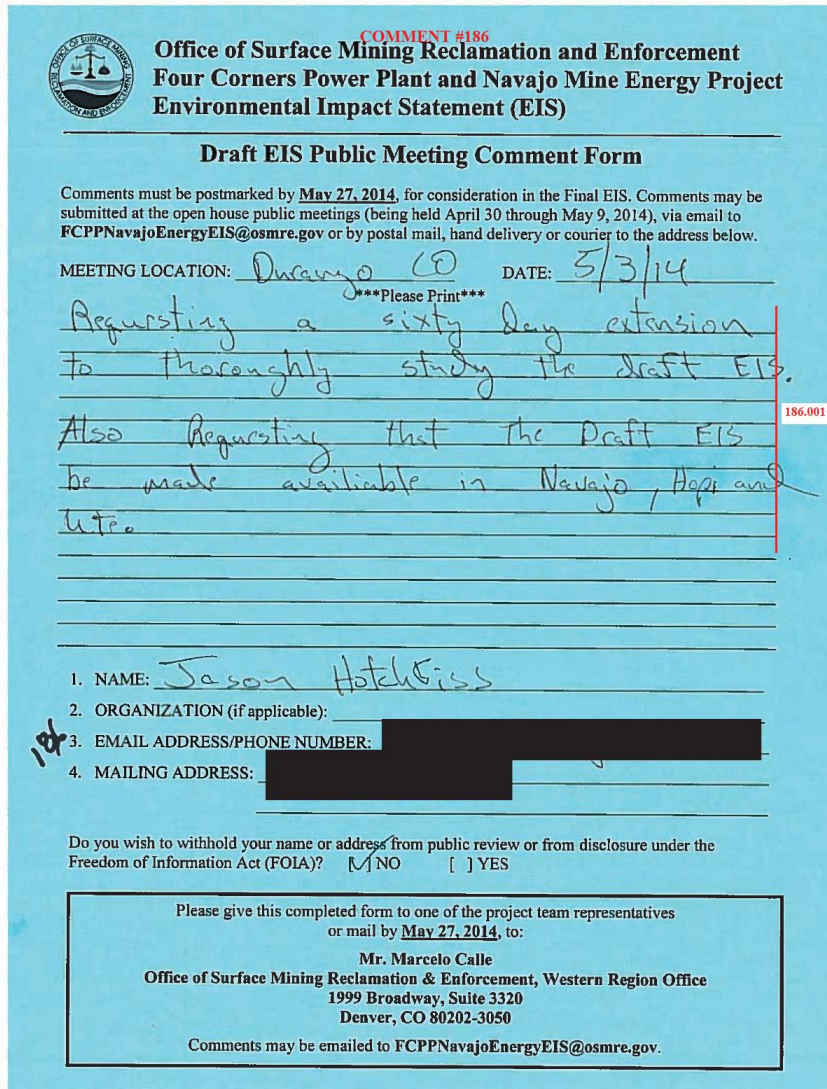 COMMENT #186
OFFICE OF SURFACE MINING
RECLAMATION AND ENFORCEMENT
Office of Surface Mining Reclamation and Enforcement
Four Corners Power Plant and Navajo Mine Energy Project
Environmental Impact Statement (EIS)
Draft EIS Public Meeting Comment Form
Comments must be postmarked by May 27, 2014, for consideration in the Final EIS. Comments may be
submitted at the open house public meetings (being held April 30 through May 9, 2014), via email to
FCPPNavajoEnergyEIS@osmre.gov or by postal mail, hand delivery or courier to the address below.
MEETING LOCATION: Durango CO DATE: 5/3/14
***Please Print***
Requesting a sixty Day extension
to thoroughly study the draft EIS.
186.001
Also Requesting that the Draft EIS
be made availiable in Navajo, Hopi and
Ute.
1. NAME: Jason Hotchkiss
2. ORGANIZATION (if applicable):
186
3. EMAIL ADDRESS/PHONE NUMBER:
4. MAILING ADDRESS:
Do you wish to withhold your name or address from public review or from disclosure under the
Freedom of Information Act (FOIA)? [✓] NO [ ] YES
Please give this completed form to one of the project team representatives
or mail by May 27, 2014, to:
Mr. Marcelo Calle
Office of Surface Mining Reclamation & Enforcement, Western Region Office
1999 Broadway, Suite 3320
Denver, CO 80202-3050
Comments may be emailed to FCPPNavajoEnergyEIS@osmre.gov.